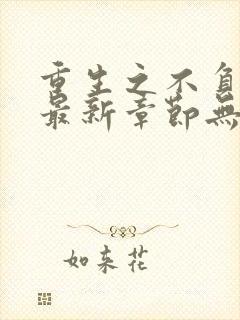 重生之不負
最新章節無
如来花